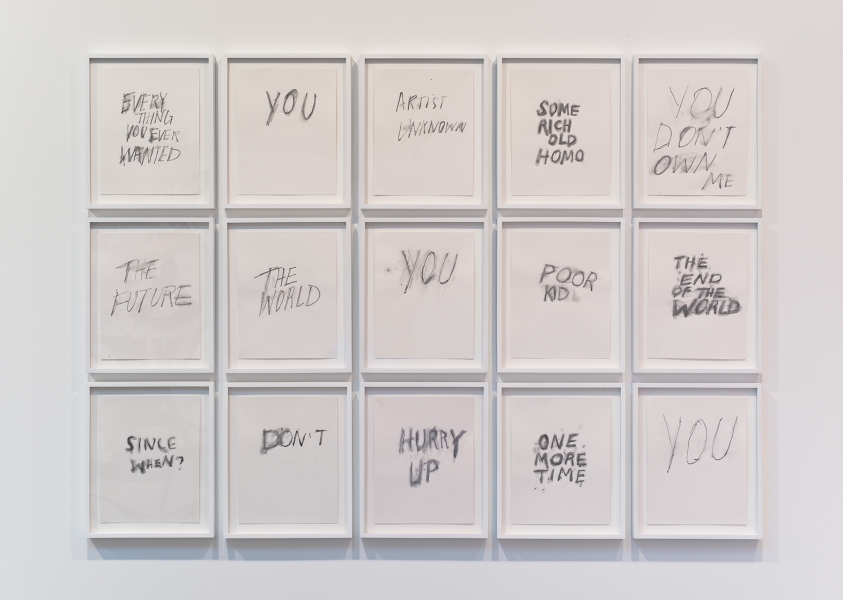 EVERY
THING
YOU EVER
WANTED
YOU
ARTIST
UNKNOWN
SOME
RICH
OLD
HOMO
YOU
DON'T
OWN
ME
THE
FUTURE
THE
WORLD
YOU
POOR
KID
THE
END
OF THE
WORLD
SINCE
WHEN?
DON'T
HURRY
UP
ONE
MORE
TIME
YOU